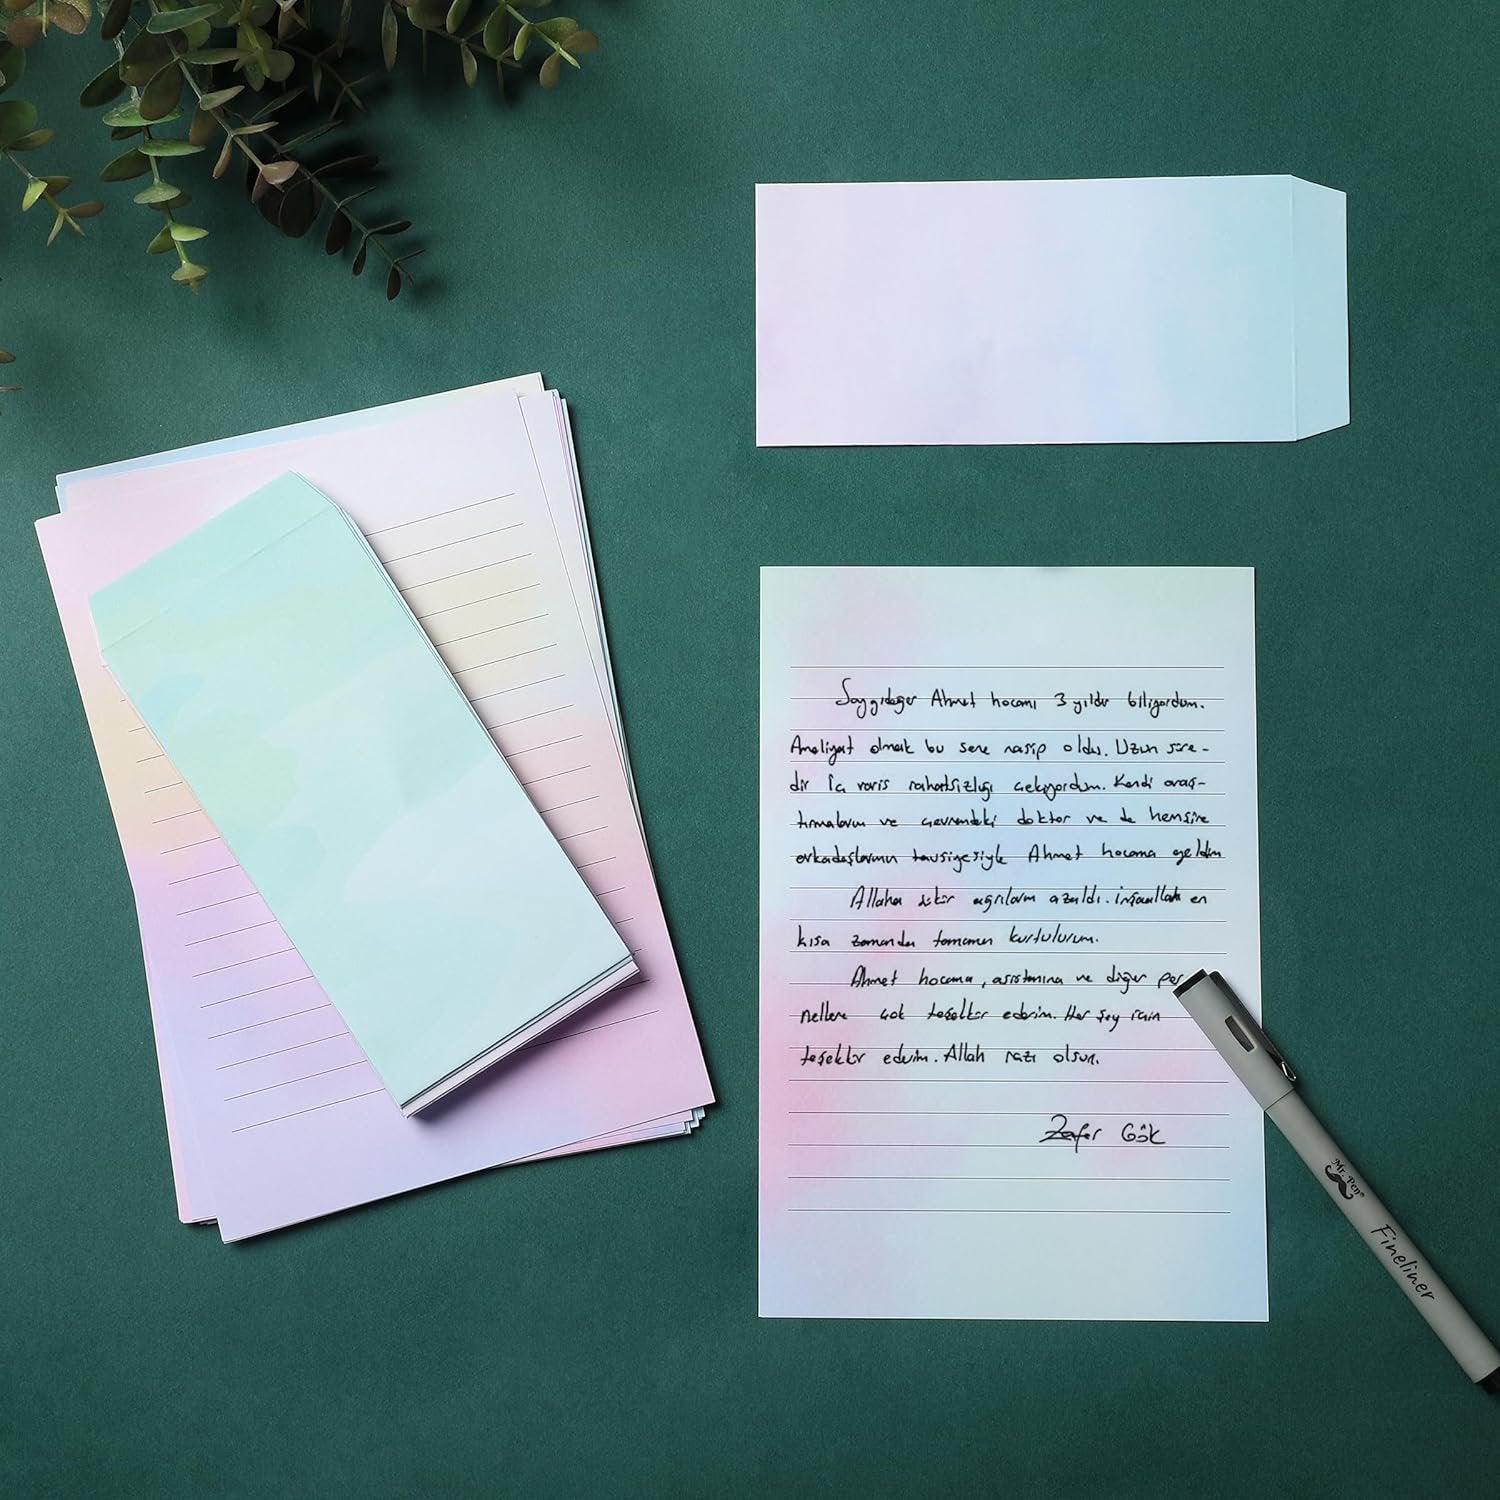 Saygıdeğer Ahmet hocamı 3 yıldır biliyordum.
Ameliyat olmak bu sene nasip oldu. Uzun süre-
dir İç varis rahatsızlığı çekiyordum. Kendi araş-
tırmalarım ve çevremdeki doktor ve de hemşire
arkadaşlarımın tavsiyesiyle Ahmet hocama geldim
Allaha şükür ağrılarım azaldı. İnşaallah en
kısa zamanda tamamen kurtulurum.
Ahmet hocama, asistanına ve diğer per
nellere çok teşekkür ederim. Her şey için
teşekkür ederim. Allah razı olsun.
Zafer Gök
Mr. Pen®
Fineliner